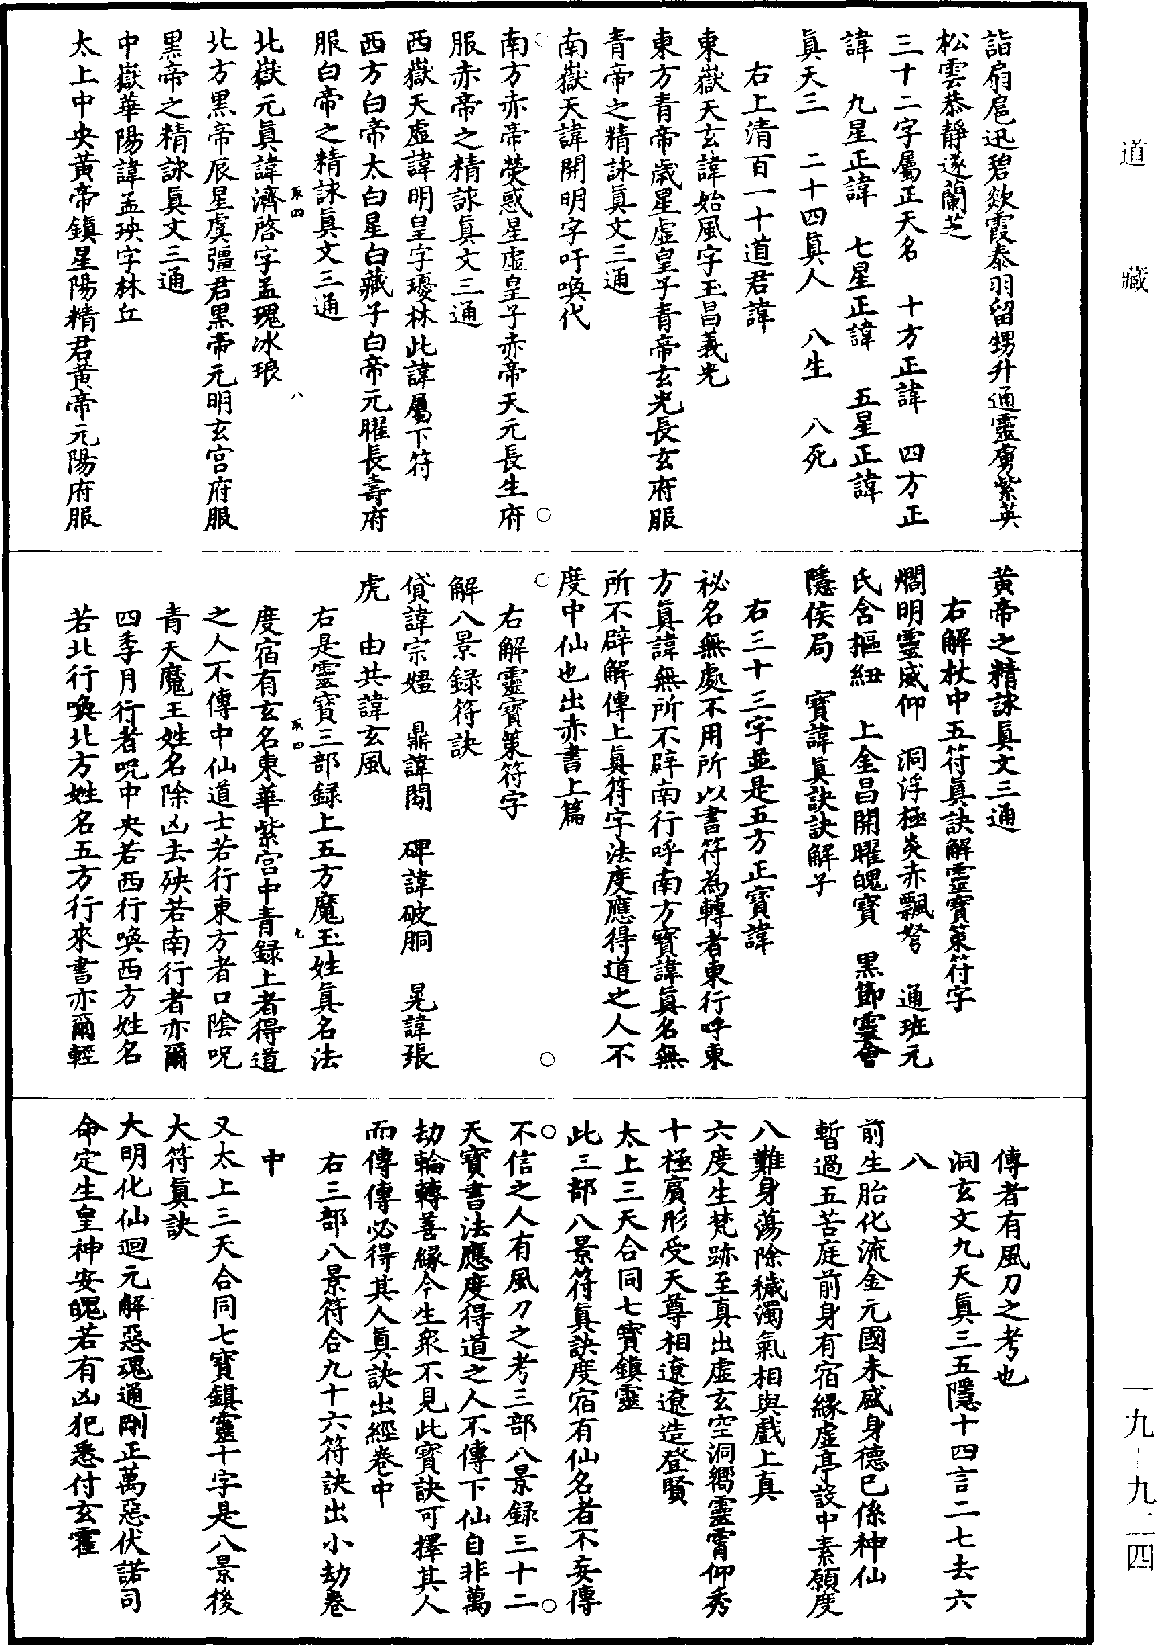 道藏
詣扇扈迅碧欻霞泰羽留甥升通靈虜紫英
松雲恭靜遂蘭芝
三十二字屬正天名 十方正諱 四方正
諱 九星正諱 七星正諱 五星正諱
真天三 二十四真人 八生 八死
右上清百一十道君諱
東嶽天玄諱始風字玉昌義光
東方青帝歲星虛皇子青帝玄光長玄府服
青帝之精詠真文三通
南嶽天諱開明字吁喚代
南方赤帝熒惑星虛皇子赤帝天元長生府
服赤帝之精詠真文三通
西嶽天虛諱明皇字瓊林此諱屬下符
西方白帝太白星白藏子白帝元曜長壽府
服白帝之精詠真文三通
八
北嶽元真諱濟啓字孟瑰冰琅
北方黑帝辰星虞彊君黑帝元明玄宮府服
黑帝之精詠真文三通
中嶽華陽諱孟殃字林丘
太上中央黃帝鎮星陽精君黃帝元陽府服
黃帝之精詠真文三通
右解杖中五符真訣解靈寶策符字
爓明靈威仰 洞浮極炎赤飄弩 通班元
氏含樞紐 上金昌開曜魄寶 黑節靈會
隱侯局 寶諱真訣訣解子
右三十三字並是五方正寶諱
祕名無處不用所以書符為轉者東行呼東
方真諱無所不辟南行呼南方寶諱真名無
所不辟解傳上真符字法度應得道之人不
度中仙也出赤書上篇
右解靈寶策符字
解八景録符訣
貸諱宗嬑 鼎諱閱 碑諱破胴 晃諱張
虎 由共諱玄風
右是靈寶三部録上五方魔王姓真名法
九
度宿有玄名東華紫宮中青録上者得道
之人不傳中仙道士若行東方者口陰呪
青天魔王姓名除凶去殃若南行者亦爾
四季月行者呪中央若西行喚西方姓名
若北行喚北方姓名五方行來書亦爾輕
傳者有風刀之考也
洞玄文九天真三五隱十四言二七去六
八
前生胎化流金元國未感身德已係神仙
暫過五苦庭前身有宿緣虛亭設中素願度
八難身蕩除穢濁氣相與戲上真
六度生梵跡至真出虛玄空洞嚮靈霄仰秀
十極賓形受天尊相遼遼造登賢
太上三天合同七寶鎮靈
此三部八景符真訣度宿有仙名者不妄傳
不信之人有風刀之考三部八景録三十二
天寶書法應度得道之人不傳下仙自非萬
劫輪轉善緣今生衆不見此寶訣可擇其人
而傳傳必得其人真訣出經卷中
右三部八景符合九十六符訣出小劫卷
中
又太上三天合同七寶鎮靈十字是八景後
大符真訣
大明化仙迴元解惡魂通剛正萬惡伏諾司
命定生皇神安魄若有凶犯悉付玄霍
一九-九二四